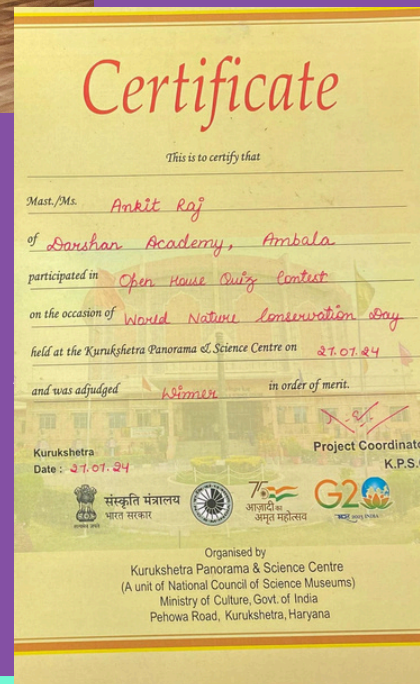 Certificate
This is to certify that
Mast./Ms. Ankit Raj
of Darshan Academy, Ambala
participated in Open House Quiz Contest
on the occasion of World Nature Conservation Day
held at the Kurukshetra Panorama & Science Centre on 27.07.24
and was adjudged Winner in order of merit.
Kurukshetra
Date : 27.07.24
Project Coordinato
K.P.S.
संस्कृति मंत्रालय
भारत सरकार
75
आज़ादी का
अमृत महोत्सव
G20
Organised by
Kurukshetra Panorama & Science Centre
(A unit of National Council of Science Museums)
Ministry of Culture, Govt. of India
Pehowa Road, Kurukshetra, Haryana